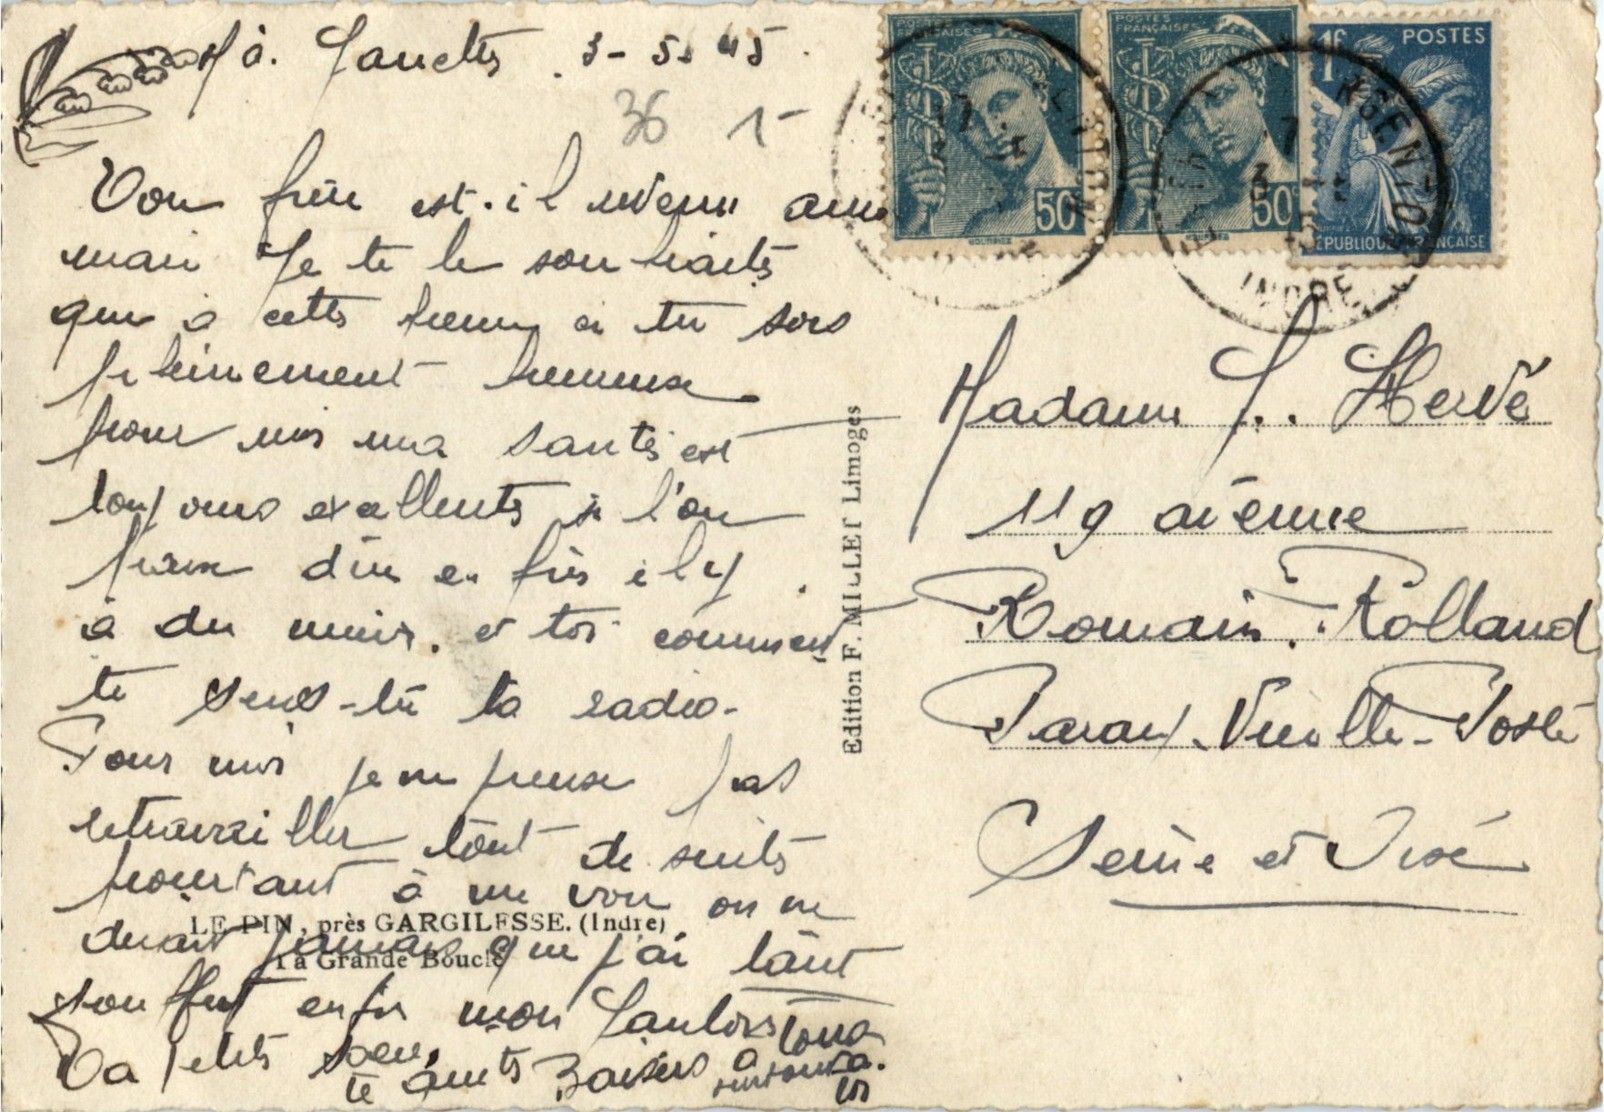 3-5-45
36 1-
Ton frère est-il revenu
mais Je te le souhaite
que à cette heure ci tu sois
pleinement heureuse
pour moi ma santé est
toujours exellente si l'on
peux dire enfin il y
à du mieux. et toi comment
te sens-tu ta radio-
Pour moi je ne pense pas
retravailler tout de suite
pourtant à me voir on ne
dirait jamais que j'ai tant
souffert enfin mon
Ta petite soeur
te Baisers a tous
surtout a
LE PIN, près GARGILESSE. (Indre)
La Grande Boucle
Edition F. MILLET Limoges
POSTES FRANÇAISES
50
POSTES FRANÇAISES
50
1F POSTES
RÉPUBLIQUE FRANÇAISE
ARGENTON
INDRE
Madame J. Hervé
119 avenue
Romain Rolland
Paray-Vieille-Poste
Seine et Oise